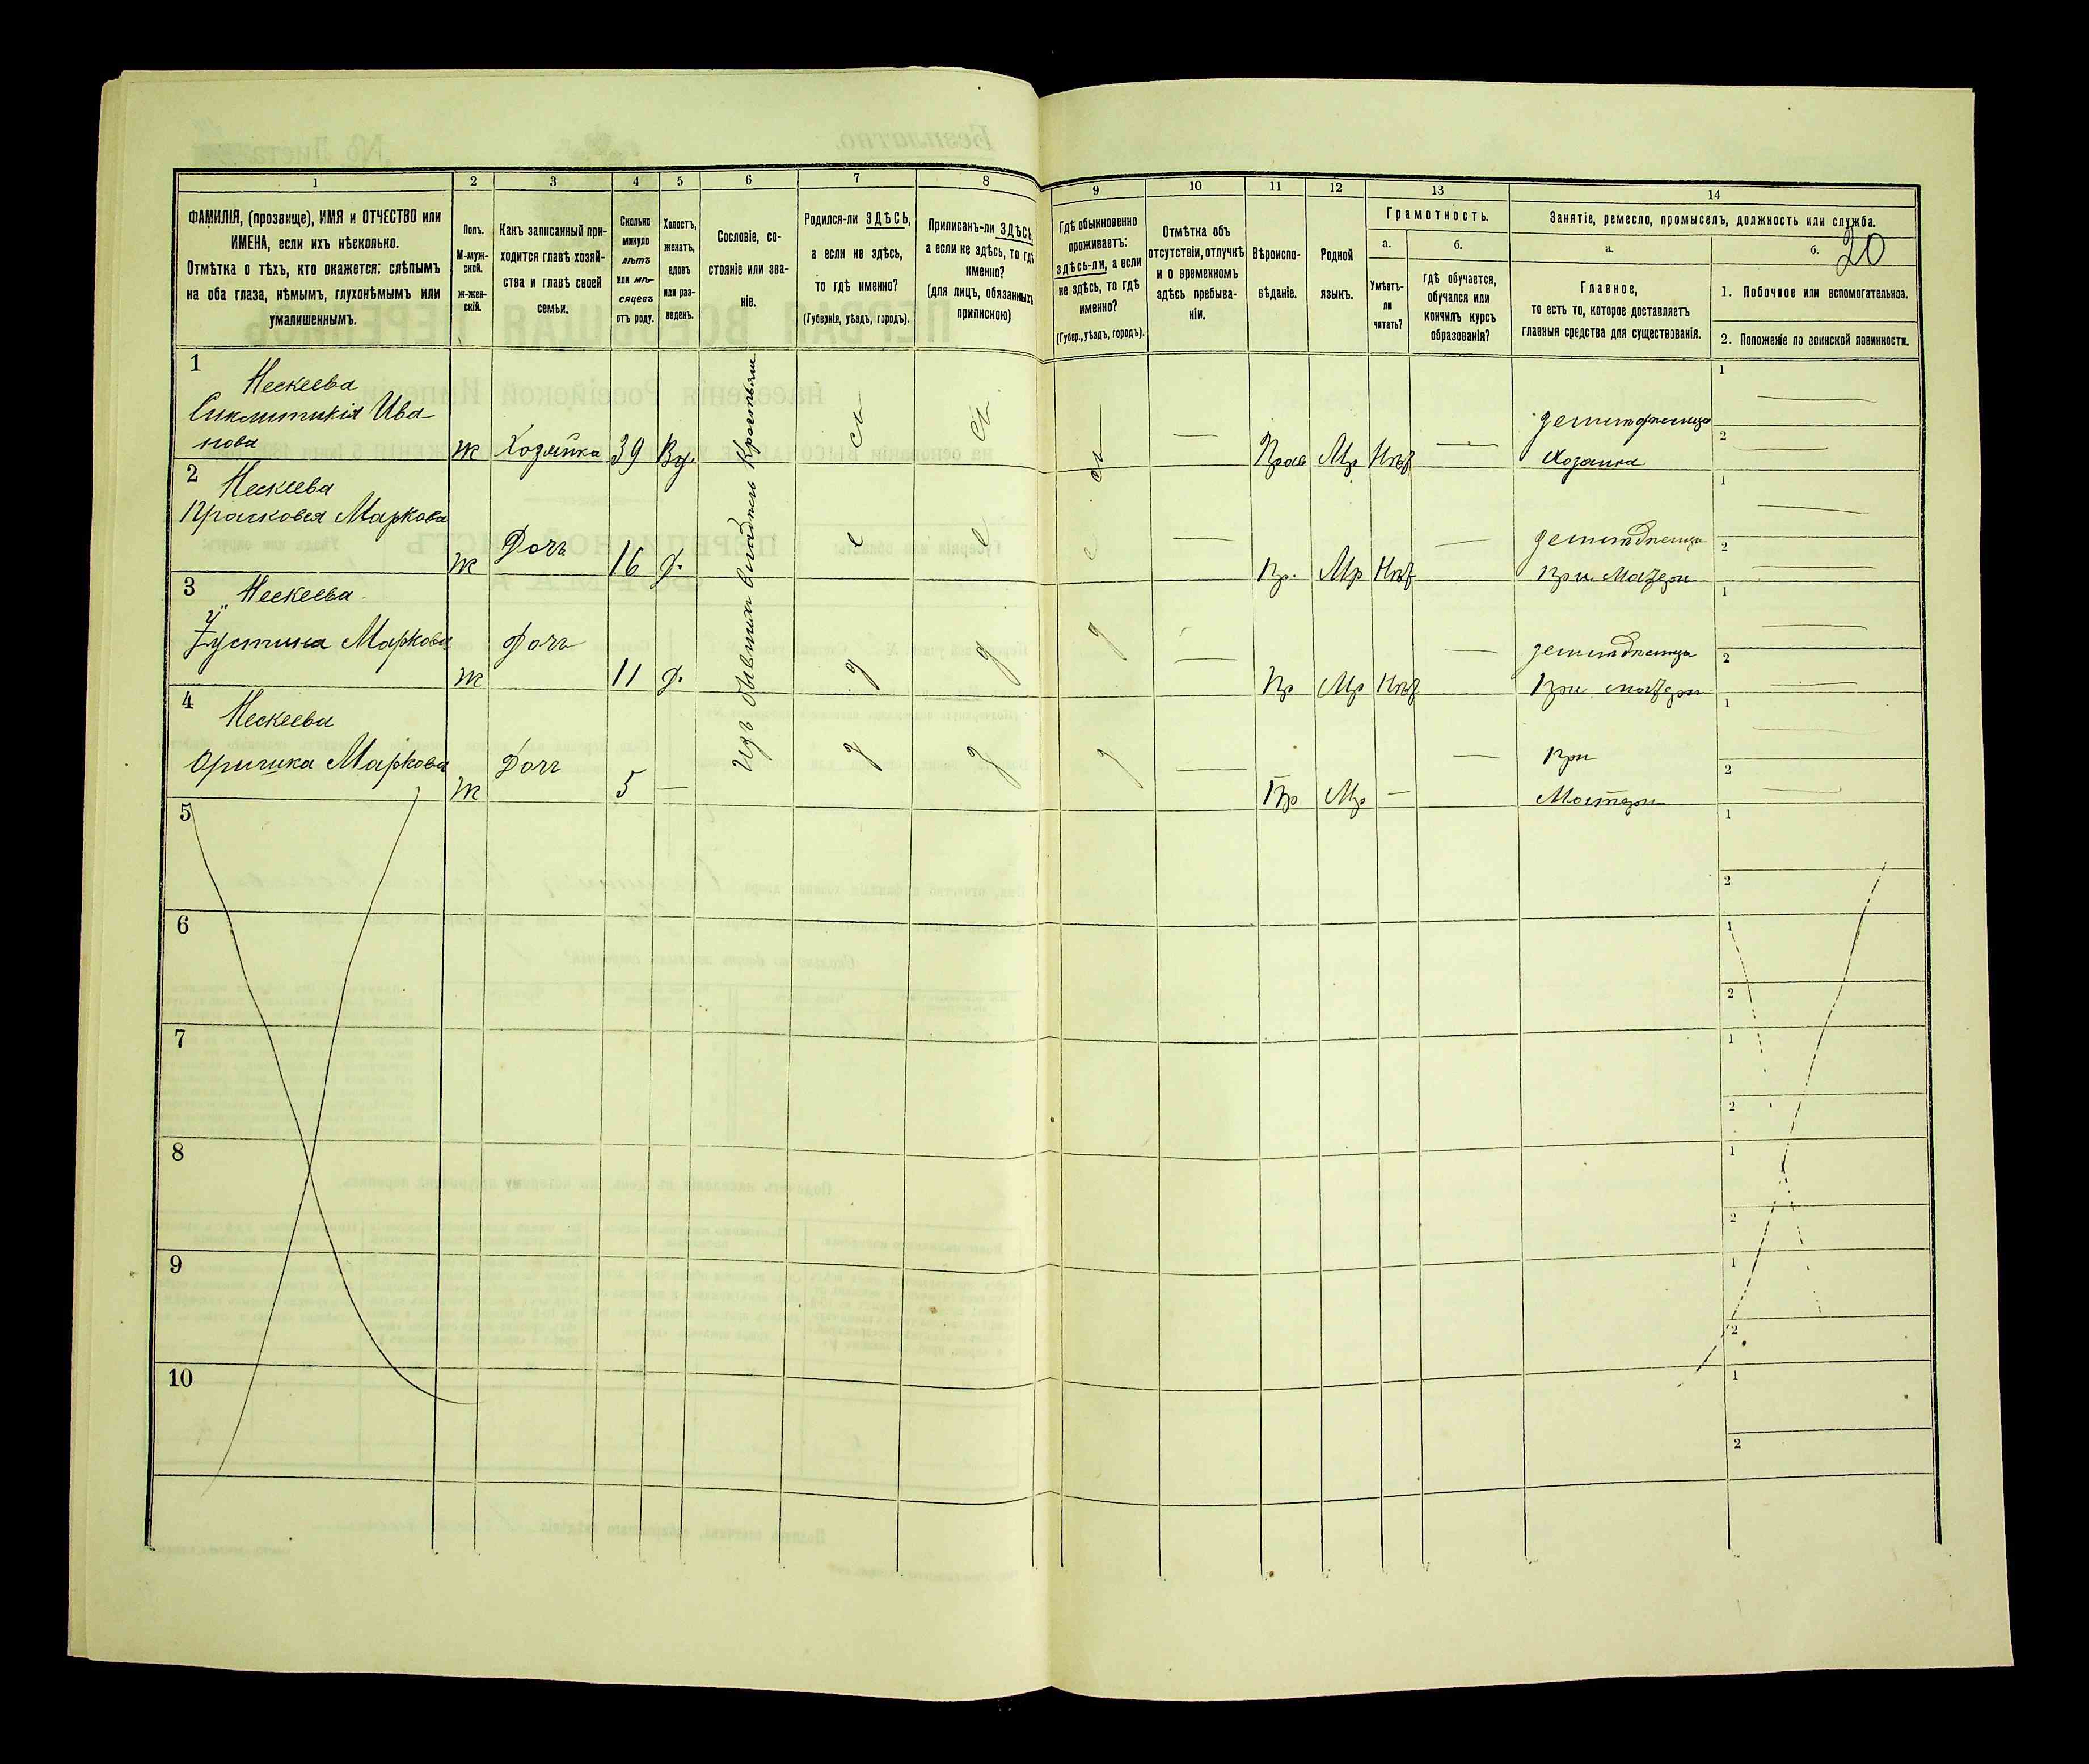 1 2 3 4 5 6 7 8 9 10 11 12 13 14
ФАМИЛІЯ, (прозвище), ИМЯ и ОТЧЕСТВО или
ИМЕНА, если ихъ нѣсколько.
Отмѣтка о тѣхъ, кто окажется: слѣпымъ
на оба глаза, нѣмымъ, глухонѣмымъ или
умалишеннымъ.
Полъ.
М-муж-
ской.
ж-жен-
скій.
Какъ записанный при-
ходится главѣ хозяй-
ства и главѣ своей
семьи.
Сколько
минуло
лѣтъ
или мѣ-
сяцевъ
отъ роду.
Холостъ,
женатъ,
вдовъ
или раз-
веденъ.
Сословіе, со-
стояніе или зва-
ніе.
Родился-ли ЗДѢСЬ,
а если не здѣсь,
то гдѣ именно?
(Губернія, уѣздъ, городъ).
Приписанъ-ли ЗДѢСЬ
а если не здѣсь, то гдѣ
именно?
(для лицъ, обязанныхъ
припискою)
Гдѣ обыкновенно
проживаетъ:
здѣсь-ли, а если
не здѣсь, то гдѣ
именно?
(Губер., уѣздъ, городъ).
Отмѣтка объ
отсутствіи, отлучкѣ
и о временномъ
здѣсь пребыва-
ніи.
Вѣроиспо-
вѣданіе.
Родной
языкъ.
Грамотность.
а.
Умѣетъ-
ли
читать?
б.
гдѣ обучается,
обучался или
кончилъ курсъ
образованія?
Занятіе, ремесло, промыселъ, должность или служба.
20
а.
Главное,
то есть то, которое доставляетъ
главныя средства для существованія.
б.
1. Побочное или вспомогательное.
2. Положеніе по воинской повинности.
Изъ бывшихъ владѣл. крестьянъ
1
Нескеева
Синклитикія Ива
нова
Ж Хозяйка 39 Вд. Прав Мр Нѣт
хозяйка
1
2
2
Нескеева
Прасковея Маркова
Ж Дочь 16 Д. Пр. Мр Нѣт
при матери
1
2
3
Нескеева
Устина Маркова
Ж Дочь 11 Д. Пр Мр Нѣт
при матери
1
2
4
Нескеева
Оришка Маркова
Ж Дочь 5 — Пр Мр —
при
матери
1
2
5
1
2
6
1
2
7
1
2
8
1
2
9
1
2
10
1
2